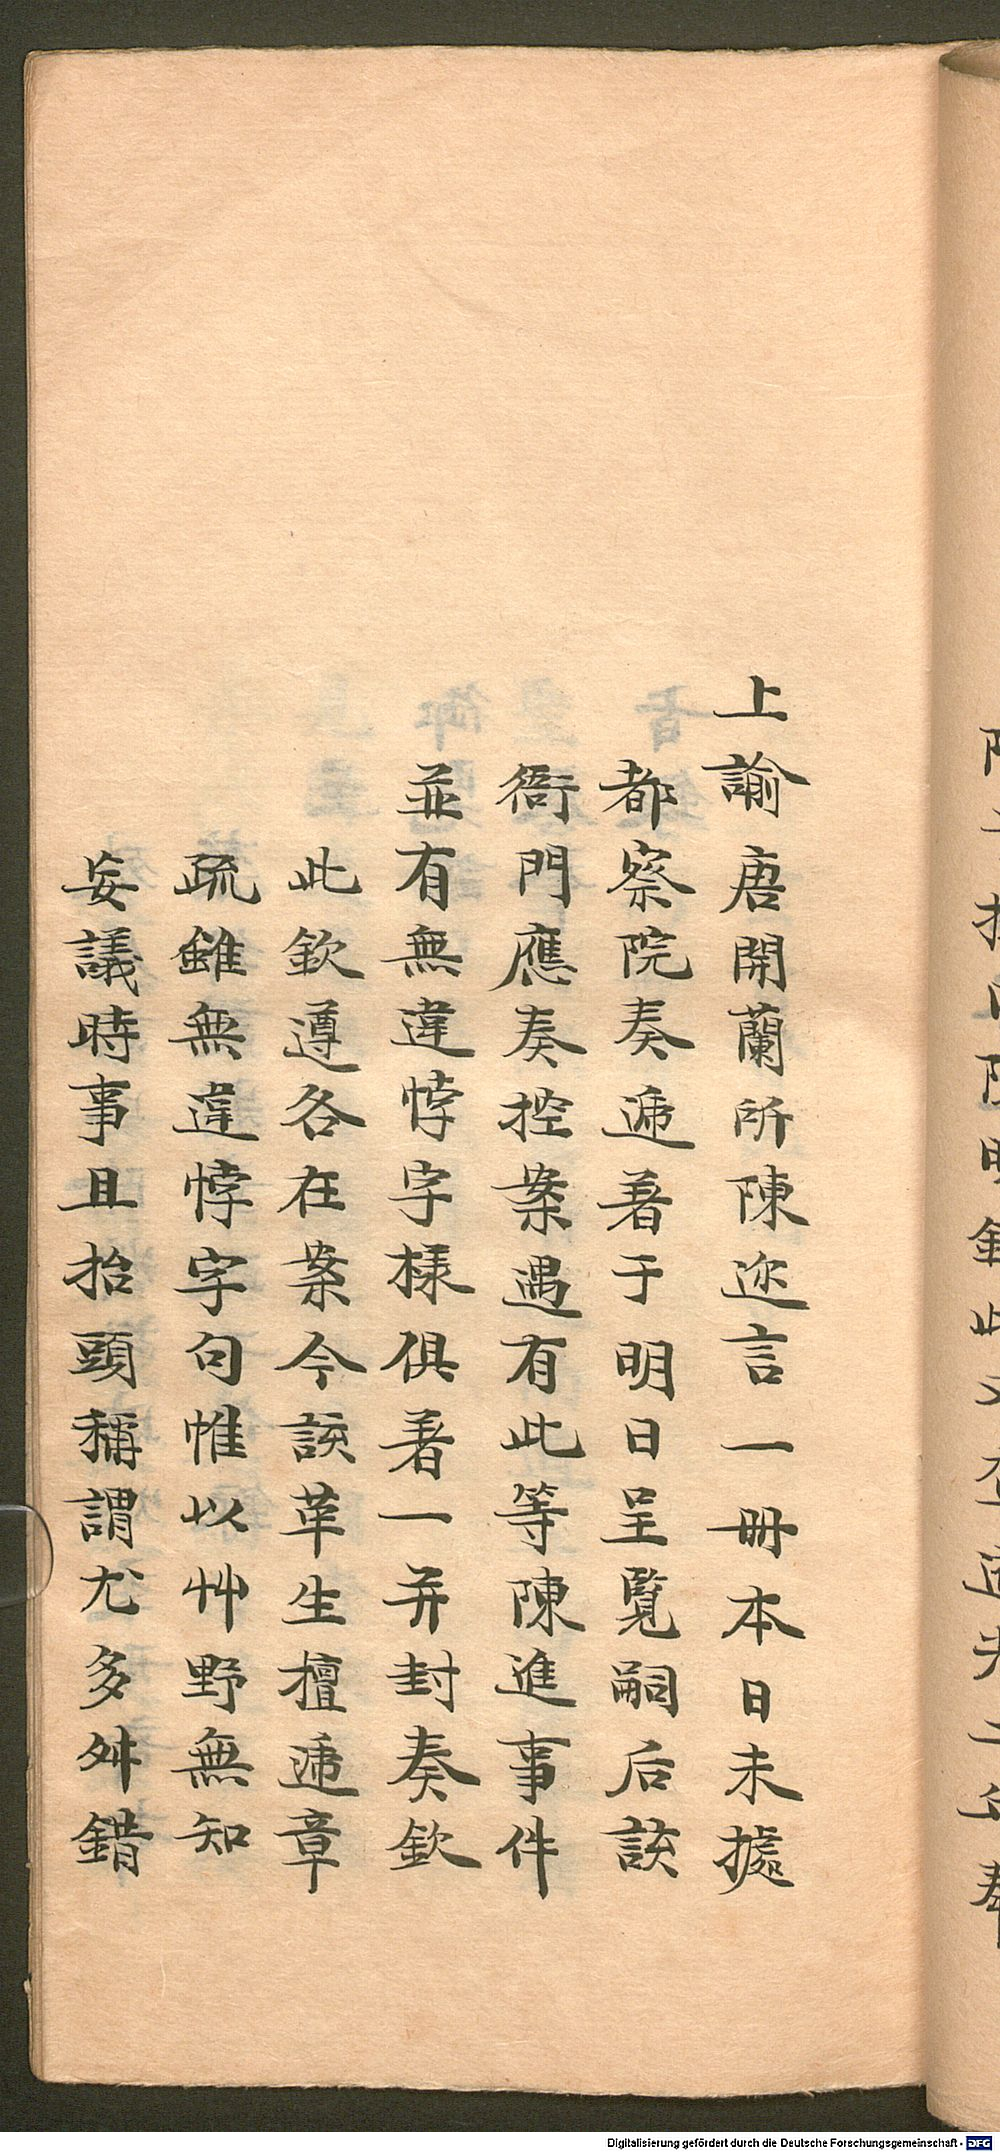 上諭唐開蘭所陳迩言一冊本日未據
都察院奏遞著于明日呈覧嗣后該
衙門應奏控案遇有此等陳進事件
並有無違悖字様俱著一并封奏欽
此欽遵各在案今該革生擅遞章
疏雖無違悖字句惟以艸野無知
妄議時事且抬頭稱謂尤多舛錯
Digitalisierung gefördert durch die Deutsche Forschungsgemeinschaft - DFG